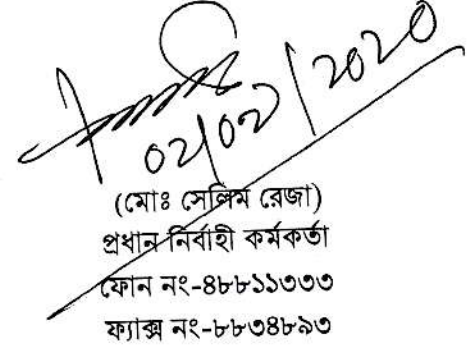 ০২/০২/২০২০
(মোঃ সেলিম রেজা)
প্রধান নির্বাহী কর্মকর্তা
ফোন নং-৪৮৮১১৩৩৩
ফ্যাক্স নং-৮৮৩৪৮৯৩